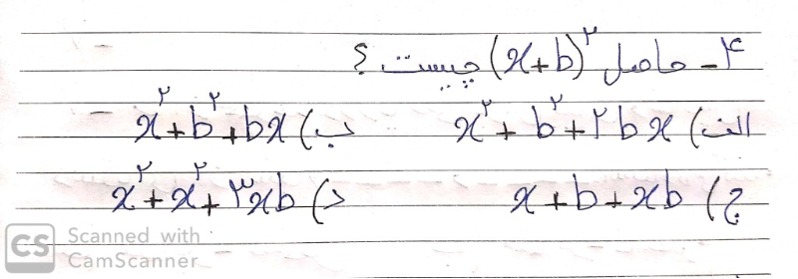 ۴- حاصل (x+b)^۲ چیست ؟
الف) x^۲ + b^۲ + ۲bx ب) x^۲ + b^۲ + bx
ج) x + b + xb د) x^۲ + x^۲ + ۳xb
CS Scanned with
CamScanner